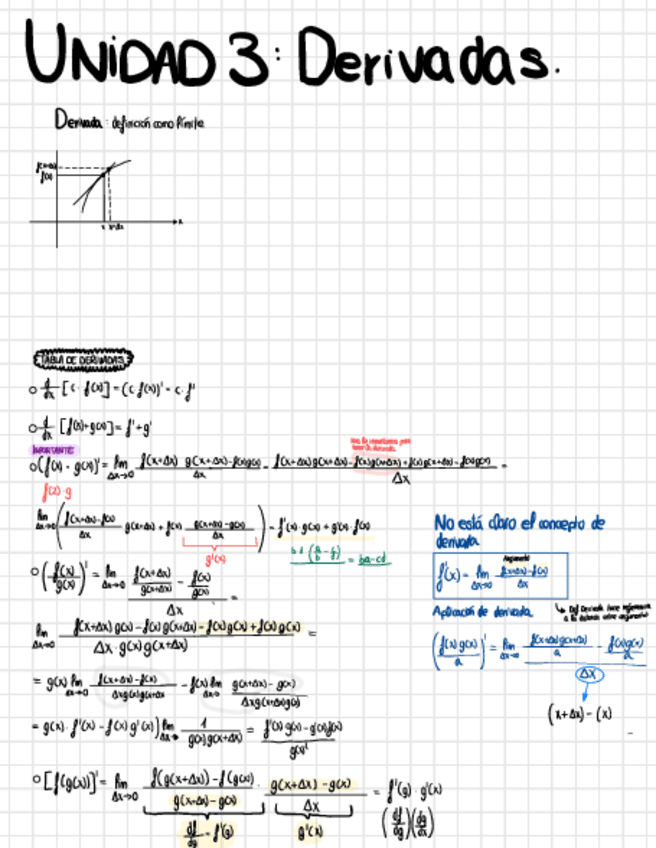 UNIDAD 3: Derivadas.
Derivada: definición como límite
f(x+Δx)
f(x)
x x+Δx
x
TABLA DE DERIVADAS
d/dx [c · f(x)] = (c f(x))' = c · f'
d/dx [f(x)+g(x)] = f' + g'
IMPORTANTE
(f(x) · g(x))' = lim Δx→0 f(x+Δx) g(x+Δx) - f(x)g(x) / Δx = f(x+Δx)g(x+Δx) - f(x)g(x+Δx) + f(x)g(x+Δx) - f(x)g(x) / Δx =
lim Δx→0 ( f(x+Δx)-f(x) / Δx g(x+Δx) + f(x) g(x+Δx)-g(x) / Δx ) = f'(x) · g(x) + g'(x) · f(x)
g'(x)
(f(x)/g(x))' = lim Δx→0 f(x+Δx)/g(x+Δx) - f(x)/g(x) / Δx =
lim Δx→0 f(x+Δx) g(x) - f(x) g(x+Δx) - f(x) g(x) + f(x) g(x) / Δx · g(x) g(x+Δx) =
= g(x) lim Δx→0 f(x+Δx)-f(x) / Δx g(x) g(x+Δx - f(x) lim Δx→0 g(x+Δx) - g(x) / Δx g(x+Δx) g(x)
= g(x) · f'(x) - f(x) g'(x) ] lim Δx→0 1 / g(x) g(x+Δx) = f'(x) g(x) - g'(x) f(x) / g(x)²
[f(g(x))]' = lim Δx→0 f(g(x+Δx)) - f(g(x)) / g(x+Δx) - g(x) · g(x+Δx) - g(x) / Δx = f'(g) · g'(x)
df/dg = f'(g) g'(x) (df/dg)(dg/dx)
No está claro el concepto de
derivada
Argumento
f'(x) = lim Δx→0 f(x+Δx)-f(x) / Δx
Aplicación de derivada
(f(x) g(x) / a)' = lim Δx→0 f(x+Δx) g(x+Δx) / a - f(x) g(x) / a
Δx
(x+Δx) - (x)